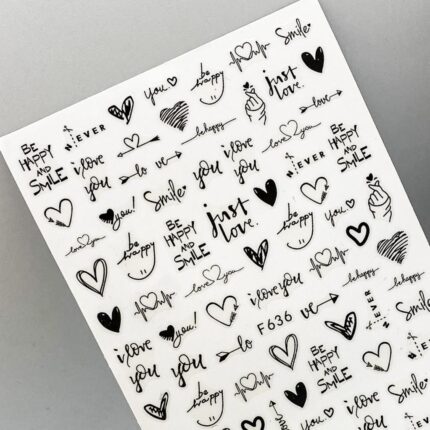 Smile
be
happy
you
just
love.
NEVER
BE
HAPPY
AND
SMILE
i love
you
be happy
love
lo ve
you
i love
you
NEVER
BE
HAPPY
AND
SMILE
you!
Smile
just
love.
be
happy
you
love you
be
happy
BE
HAPPY
AND
SMILE
love you
i love you
be happy
you!
i love
you
you
lo
F636
ve
NEVER
be
happy
BE
HAPPY
AND
SMILE
Smile
you
i love
you